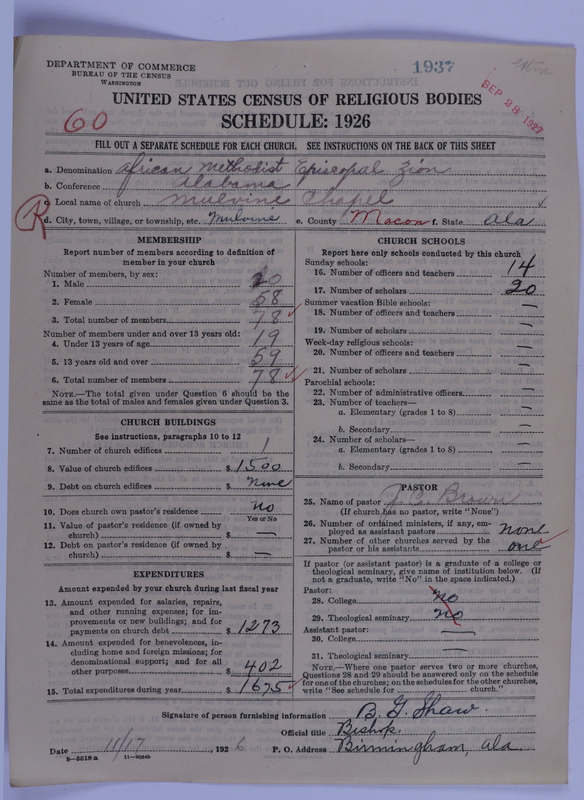 DEPARTMENT OF COMMERCE
BUREAU OF THE CENSUS
WASHINGTON
1937
SEP 28 1927
UNITED STATES CENSUS OF RELIGIOUS BODIES
SCHEDULE: 1926
60
FILL OUT A SEPARATE SCHEDULE FOR EACH CHURCH. SEE INSTRUCTIONS ON THE BACK OF THIS SHEET
a. Denomination African Methodist Episcopal Zion
b. Conference Alabama
c. Local name of church Mulvine Chapel
R
d. City, town, village, or township, etc. Mulvine e. County Macon f. State Ala
MEMBERSHIP
Report number of members according to definition of member in your church
Number of members, by sex:
1. Male 20
2. Female 58
3. Total number of members 78
Number of members under and over 13 years old:
4. Under 13 years of age 19
5. 13 years old and over 59
6. Total number of members 78
NOTE.—The total given under Question 6 should be the same as the total of males and females given under Question 3.
CHURCH BUILDINGS
See instructions, paragraphs 10 to 12
7. Number of church edifices 1
8. Value of church edifices $ 1500
9. Debt on church edifices $ none
10. Does church own pastor's residence no
Yes or No
11. Value of pastor's residence (if owned by church) $ —
12. Debt on pastor's residence (if owned by church) $ —
EXPENDITURES
Amount expended by your church during last fiscal year
13. Amount expended for salaries, repairs, and other running expenses; for improvements or new buildings; and for payments on church debt $ 1273
14. Amount expended for benevolences, including home and foreign missions; for denominational support; and for all other purposes $ 402
15. Total expenditures during year $ 1675
CHURCH SCHOOLS
Report here only schools conducted by this church
Sunday schools:
16. Number of officers and teachers 14
17. Number of scholars 20
Summer vacation Bible schools:
18. Number of officers and teachers —
19. Number of scholars —
Week-day religious schools:
20. Number of officers and teachers —
21. Number of scholars —
Parochial schools:
22. Number of administrative officers —
23. Number of teachers—
a. Elementary (grades 1 to 8) —
b. Secondary —
24. Number of scholars—
a. Elementary (grades 1 to 8) —
b. Secondary —
PASTOR
25. Name of pastor J. C. Brown
(If church has no pastor, write "None")
26. Number of ordained ministers, if any, employed as assistant pastors none
27. Number of other churches served by the pastor or his assistants one
If pastor (or assistant pastor) is a graduate of a college or theological seminary, give name of institution below. (If not a graduate, write "No" in the space indicated.)
Pastor:
28. College no
29. Theological seminary no
Assistant pastor:
30. College —
31. Theological seminary —
NOTE.—Where one pastor serves two or more churches, Questions 28 and 29 should be answered only on the schedule for one of the churches; on the schedules for the other churches, write "See schedule for church."
Signature of person furnishing information B. G. Shaw.
Official title Bishop.
Date 11/17, 1926 P. O. Address Birmingham, Ala.
8—5518 a